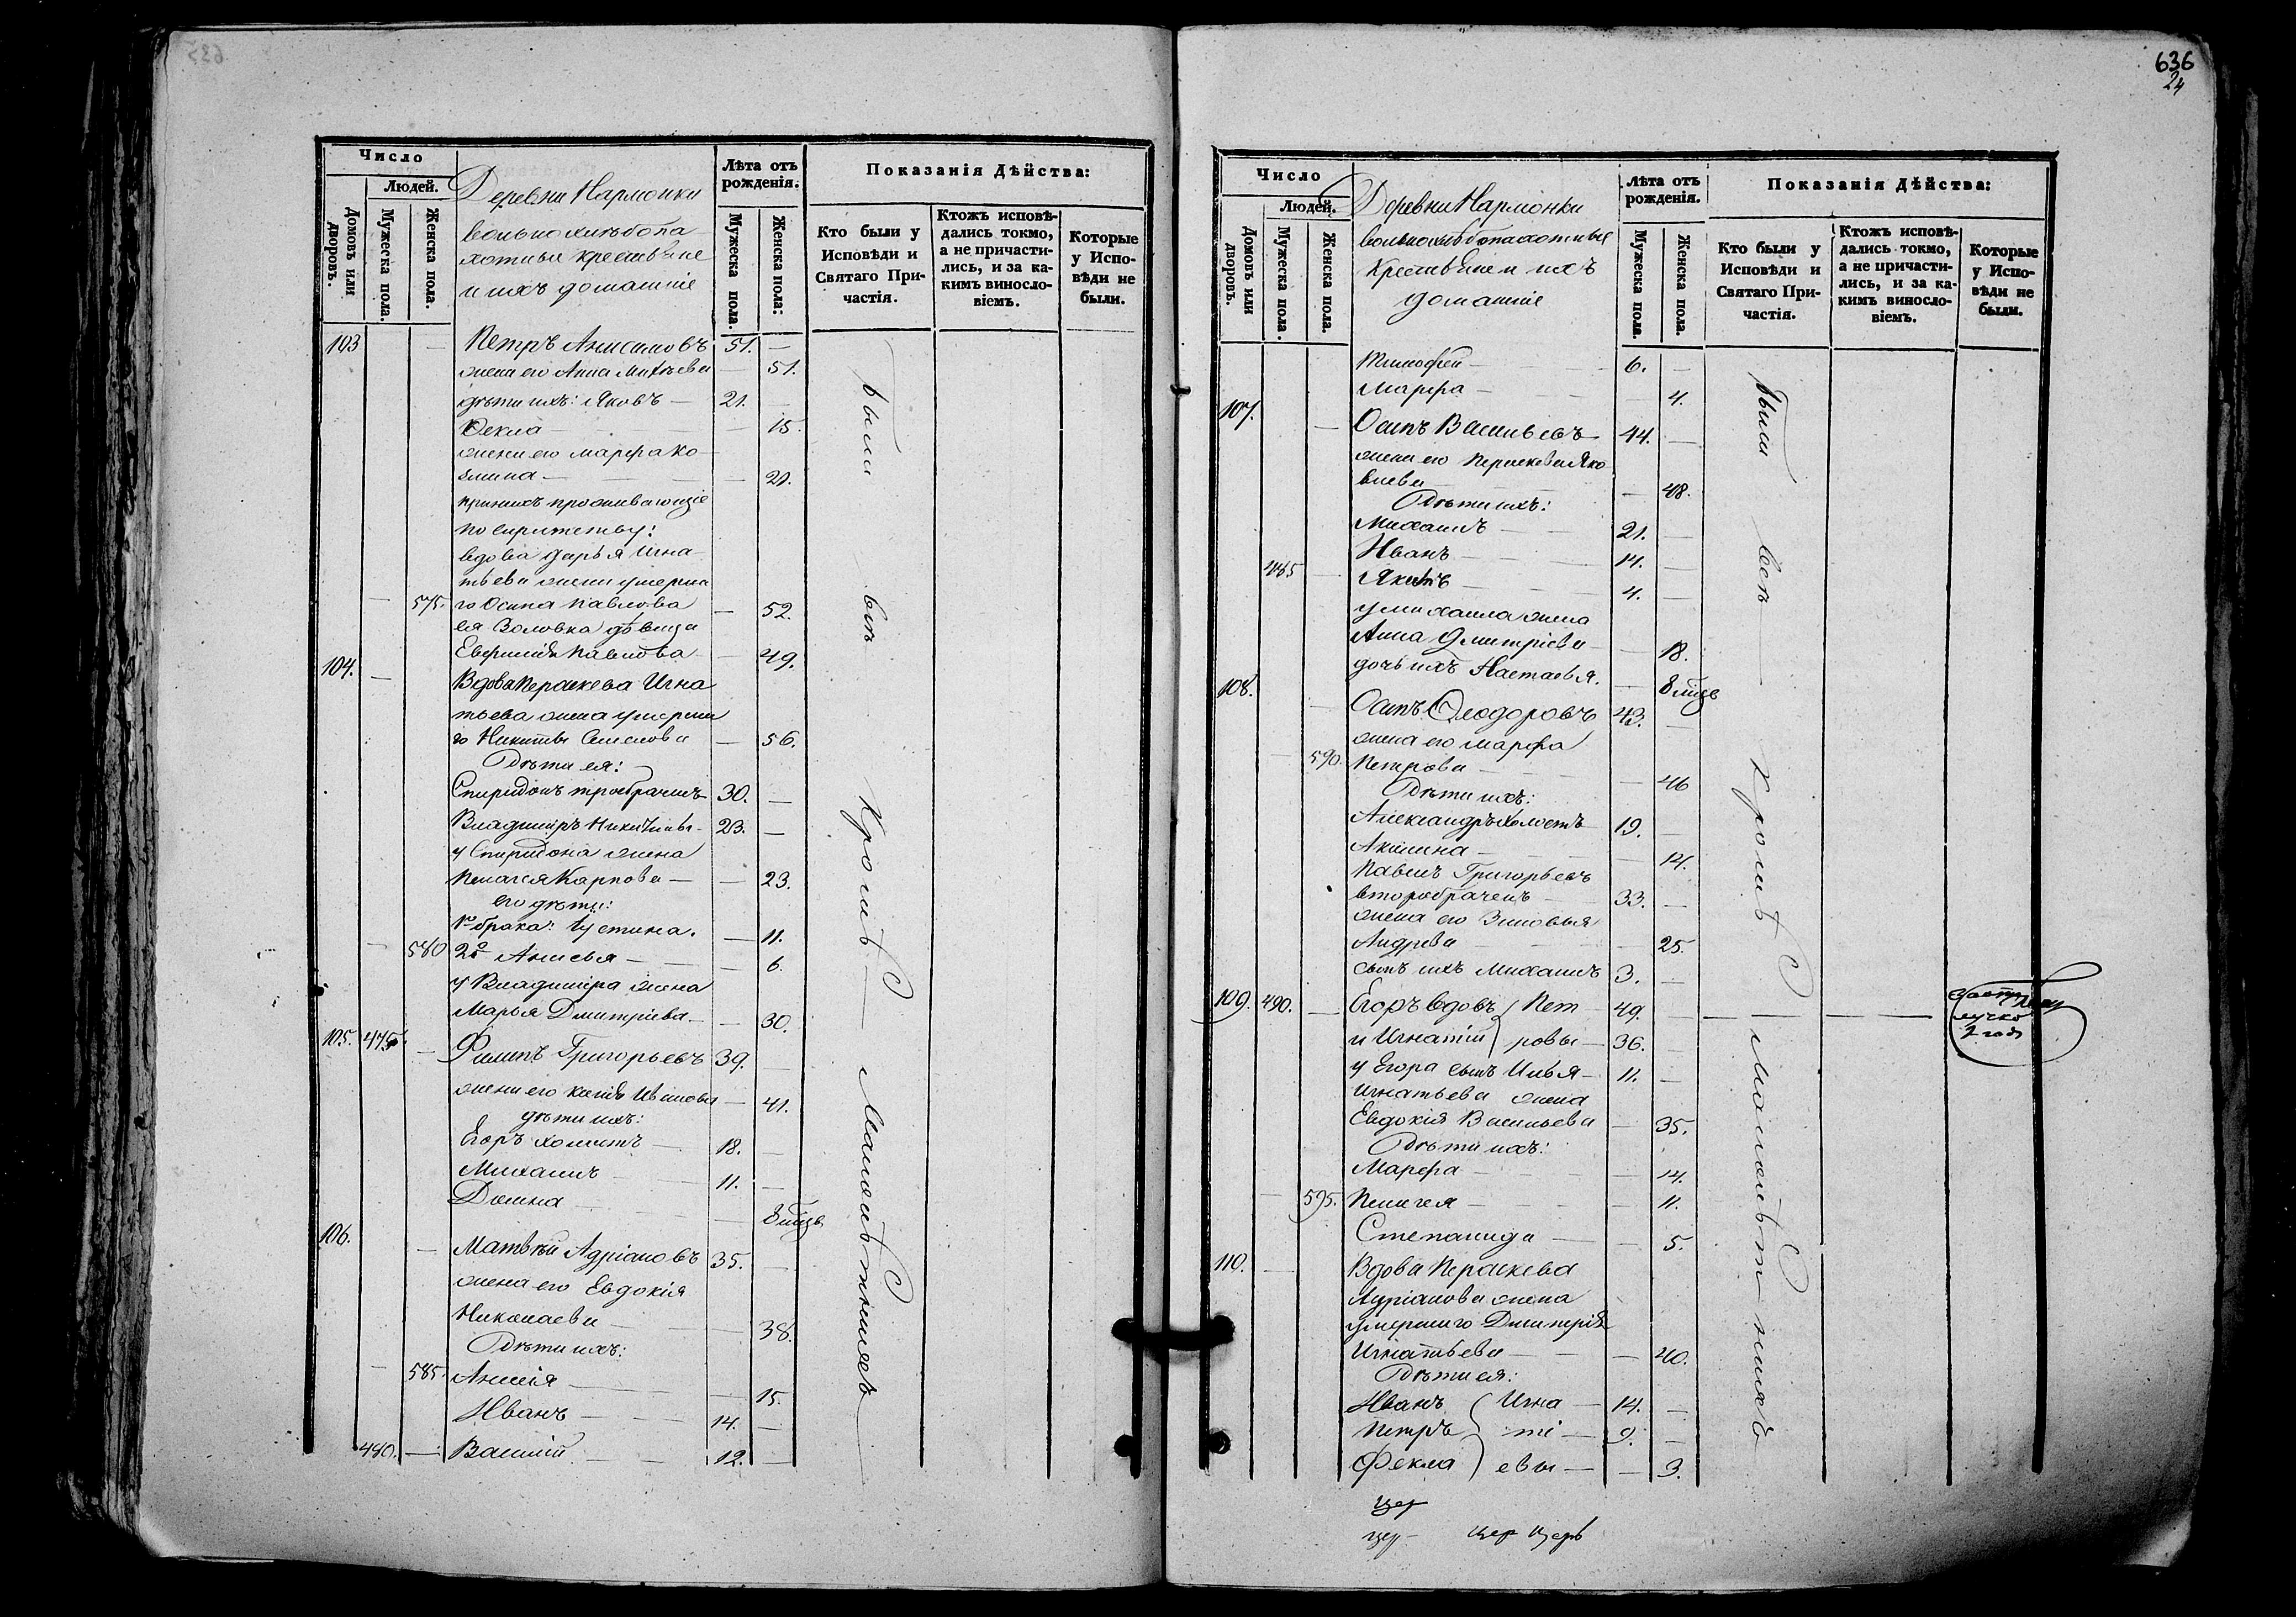 Число
Людей.
Домовъ или дворовъ.
Мужеска пола.
Женска пола.
Деревни Нармонки
вольнохлѣбопа
хотные крестьяне
и ихъ домашніе
Лѣта отъ рожденія.
Мужеска пола.
Женска пола:
Показанія Дѣйства:
Кто были у Исповѣди и Святаго Причастія.
Ктожъ исповѣдались токмо, а не причастились, и за какимъ винословіемъ.
Которые у Исповѣди не были.
103 — Петръ Анисимовъ 51. —
жена его Анна Михѣева — 51.
дѣти ихъ: Яковъ — 21. —
Фекла — — 15.
жена его Марфа Ко
змина — — 21.
при нихъ проживающіе
по сиритству:
вдова Дарья Игна
тьева жена умерша
— 575. го Осипа Павлова — 52.
ея золовка дѣвица
Евфимія Павлова — 49.
104. — Вдова Пераскева Игна
тьева жена умерша
го Никиты Семенова — 56.
Дѣти ея:
Спиридонъ троебраченъ 30. —
Владиміръ Никитины 23. —
у Спиридона жена
Пелагея Карпова — — 23.
его дѣти:
1го брака: Устина. — 11.
— 580 2го Анисья — — 6.
у Владиміра жена
Марья Дмитріева — — 30.
105. 475 — Филипъ Григорьевъ 39. —
жена его Ивановa — 41.
дѣти ихъ:
Егоръ холостъ — 18. —
Михаилъ 11. —
Домна — — 8 мцъ
106. — Матвѣй Адріановъ 35. —
жена его Евдокія
Николаева — — 38.
Дѣти ихъ:
— 585. — — 15.
Иванъ — 14. —
480. — Василій — 12. —
Были всѣ кромѣ — малолѣтнихъ —
636
24
Число
Людей.
Домовъ или дворовъ.
Мужеска пола
Женска пола.
Деревни Нармонки
вольнохлѣбопахотные
Крестьяне и ихъ
домашніе
Лѣта отъ рожденія.
Мужеска пола.
Женска пола.
Показанія Дѣйства:
Кто были у Исповѣди и Святаго Причастія.
Ктожъ исповѣдались токмо, а не причастились, и за какимъ винословіемъ.
Которые у Исповѣди не были.
Тимофей — 6. —
Марфа — — 4.
107. — Осипъ Васильевъ 44. —
жена его Пераскева Яко
влева — 48.
Дѣти ихъ:
Михаилъ — 21. —
Иванъ — 14. —
485 — Якимъ — 4. —
у Михаила жена
Анна Дмитріева — 18.
дочь ихъ Настасья. — 8 мцъ
108. — Осипъ Ѳеодоровъ 43. —
жена его Марфа
— 590. Петрова — — 46
Дѣти ихъ:
Александръ холостъ 19. —
Акилина — — 14.
Павелъ Григорьевъ
второбраченъ — 33. —
жена его Зиновья
Андреева — — 25.
сынъ ихъ Михаилъ 3. —
109. 490. — Егоръ вдовъ } Пет 49. —
и Игнатій } ровы — 36. —
у Егора сынъ Илья 11. —
Игнатьева жена
Евдокія Васильева — 35.
Дѣти ихъ:
Марфа — — 14.
— 595. Пелагея — — 11.
Степанида — — 5.
110. — Вдова Пераскева
Адріанова жена
умершаго Дмитрія
Игнатьева — — 40.
Дѣти ея:
Иванъ } Игна — 14. —
Петръ } ті — 9. —
Фекла } евы — — 3.
Были всѣ — кромѣ — малолѣтнихъ
2 года
цер
цер — цер церь